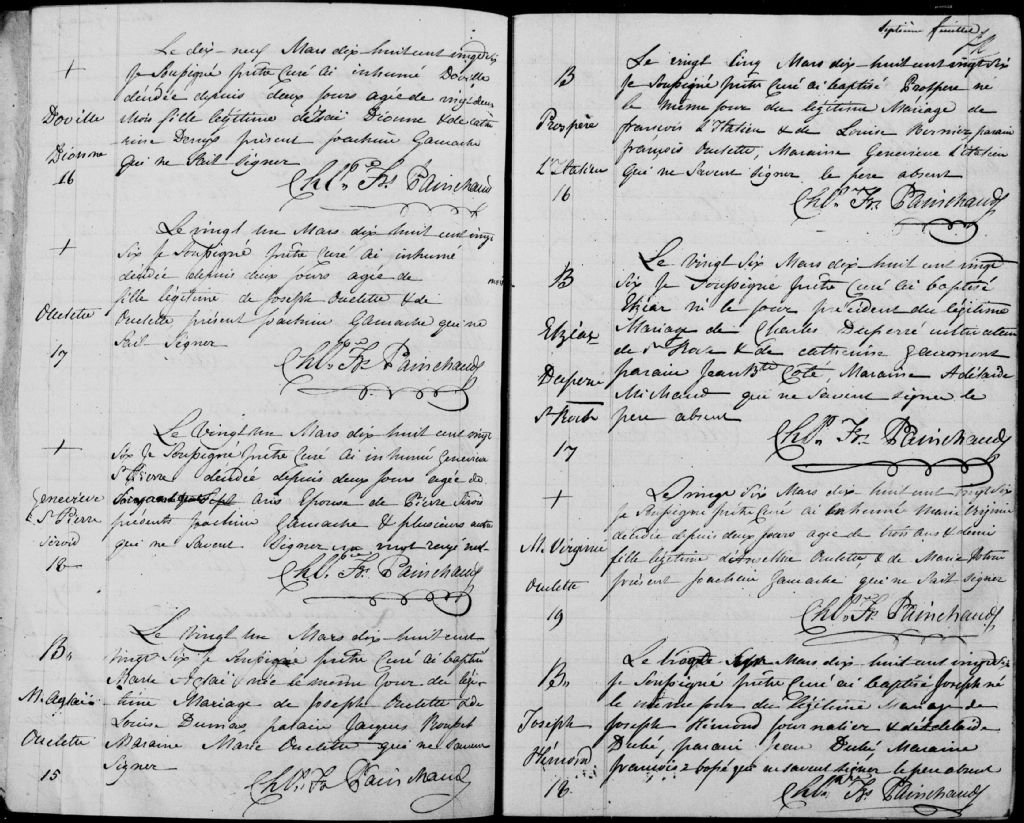 +
Doville
Dionne
16
Le dix-neuf Mars dix-huit cent vingt six
Je Soussigné prêtre Curé ai inhumé Doville
décédée depuis deux jours agée de vingt deux
Mois fille légitime Dionne & de cathe
rine Denys présent Joachim Gamache
qui ne Sait Signer
Chls. Frs. Painchaud
+
Oulette
17
Le vingt un Mars dix huit cent vingt
Six Je Soussigné prêtre Curé ai inhumé
décédée depuis deux jours agée de
fille légitime de Joseph Oulette & de
Oulette présent Joachim Gamache qui ne
Sait Signer
Chls. Frs. Painchaud
+
Genevieve
St Pierre
Sirois
18
Le Vingt un Mars dix huit cent vingt
Six Je Soussigné prêtre Curé ai inhumé Genevieve
St Pierre décédée depuis deux jours agée de
Sept ans Epouse de Pierre Sirois
présents Joachim Gamache & plusieurs autre
qui ne Savent Signer un mot rayé nul
Chls. Frs. Painchaud
B.
M. Aglaé
Oulette
15
Le Vingt un Mars dix-huit cent
vingt Six Je Soussigné prêtre Curé ai baptisé
Marie Aglaé née le même jour du légi
time Mariage de Joseph Oulette & de
Louise Dumas, parain Jacques
Maraine Marie Oulette qui ne Savent
Signer
Chls. Frs. Painchaud
Septième feuillet
B
Prospère
L'Italien
16
Le vingt Cinq Mars dix-huit cent vingt Six
Je Soussigné prêtre Curé ai baptisé Prospere né
le même jour du légitime Mariage de
françois L'Italien & de Louise Bernier parain
françois Oulette, Maraine Genevieve L'Italien
qui ne Savent Signer le pere absent
Chls. Frs. Painchaud
B
Elzéar
Duperré
St Roch
17
Le Vingt Six Mars dix-huit cent vingt
Six Je Soussigné prêtre Curé ai baptisé
Elzéar né le jour précédent du légitime
Mariage de Charles Duperré cultivateur
de St Roch & de catherine Gauvmont
parain Jean Bte Coté, Maraine Adélaide
Michaud qui ne Savent Signer le
pere absent
Chls. Frs. Painchaud
+
M. Virginie
Oulette
19
Le vingt Six Mars dix-huit cent vingt six
Je Soussigné prêtre Curé ai inhumé Marie Virginie
décédée depuis deux jours agée de trois ans & demi
fille légitime d'Anselme Oulette, & de Marie
présent Joachim Gamache qui ne Sait Signer
Chls. Frs. Painchaud
B.
Joseph
Hémond
18
Le Mars dix-huit cent vingt six
Je Soussigné prêtre Curé ai baptisé Joseph né
le même jour du légitime Mariage de
Joseph Hémond journalier & d'adelaide
Dubé, parain Jean Dubé Maraine
françoise qui ne savent signer le pere absent
Chls. Frs. Painchaud